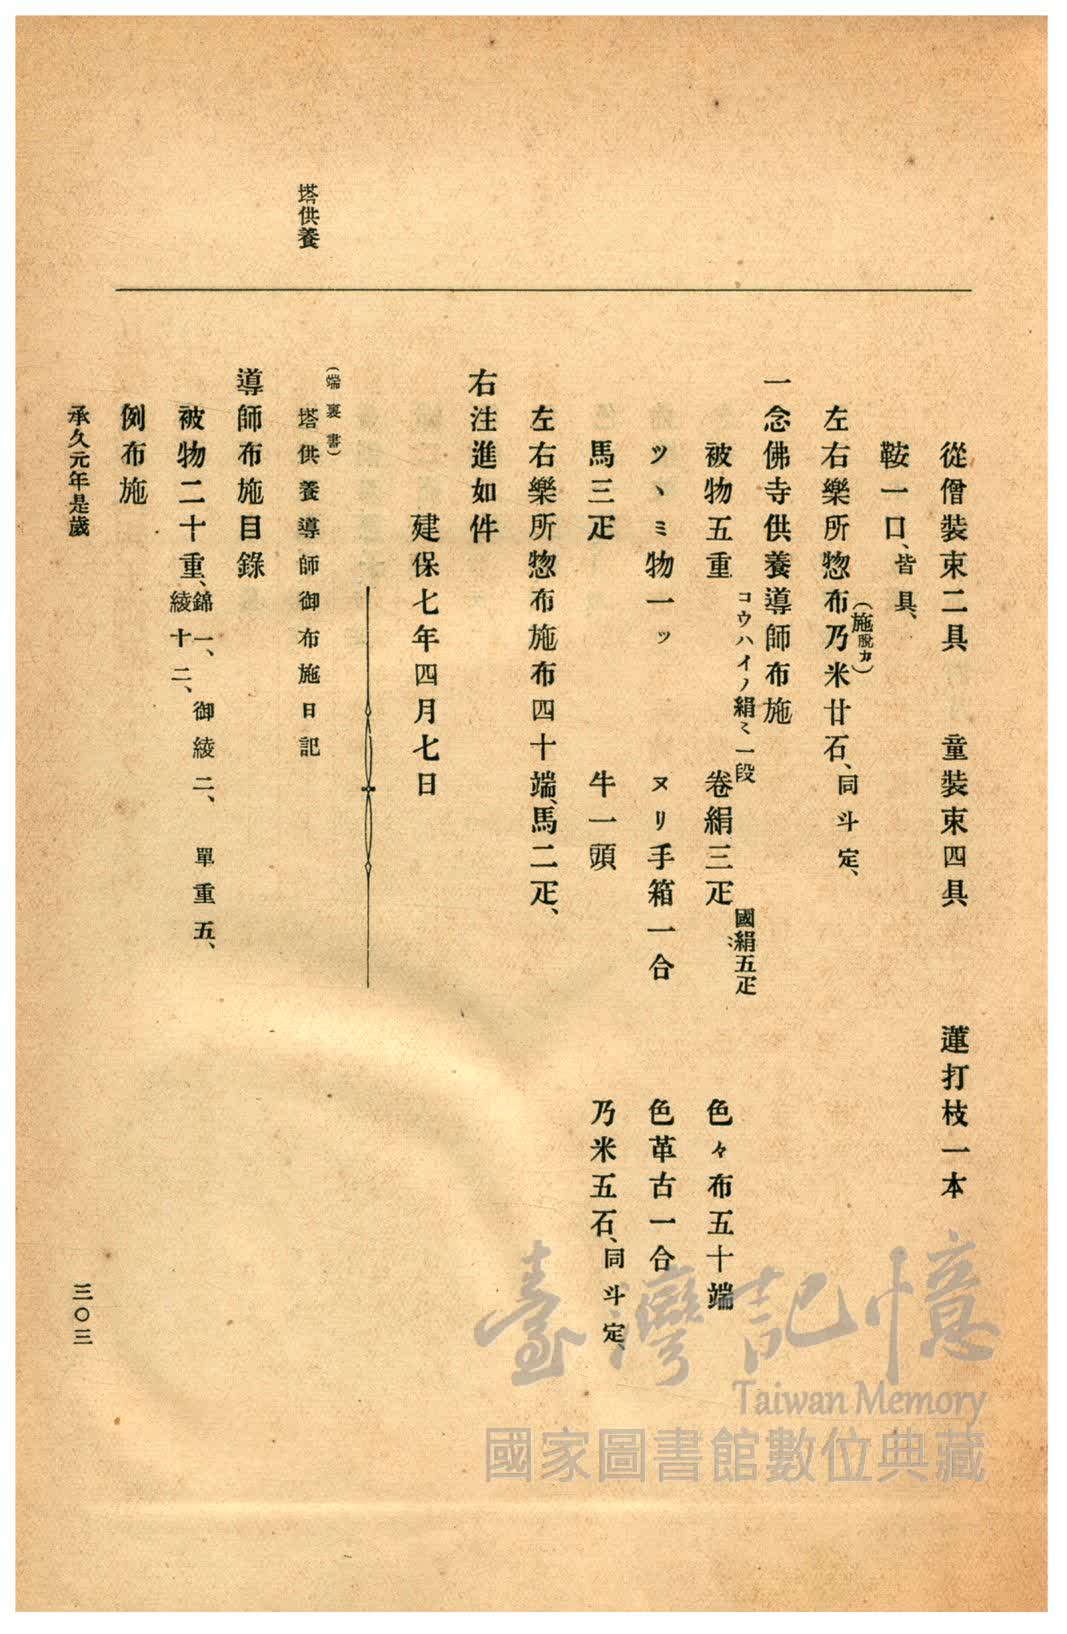 從僧裝束二具　童裝束四具　蓮打枝一本
鞍一口、皆具、
左右樂所惣布乃米廿石、同斗定、
(施脫カ)
一念佛寺供養導師布施
被物五重　卷絹三疋　色々布五十端
コウハイノ絹ミ一段
國絹五疋
ツヽミ物一ッ　ヌリ手箱一合　色革古一合
馬三疋　牛一頭　乃米五石、同斗定、
左右樂所惣布施布四十端、馬二疋、
右注進如件
建保七年四月七日
塔供養
(端裏書)
塔供養導師御布施日記
導師布施目錄
被物二十重、錦一、綾十二、御綾二、單重五、
例布施
承久元年是歲
三〇三
臺灣記憶
Taiwan Memory
國家圖書館數位典藏